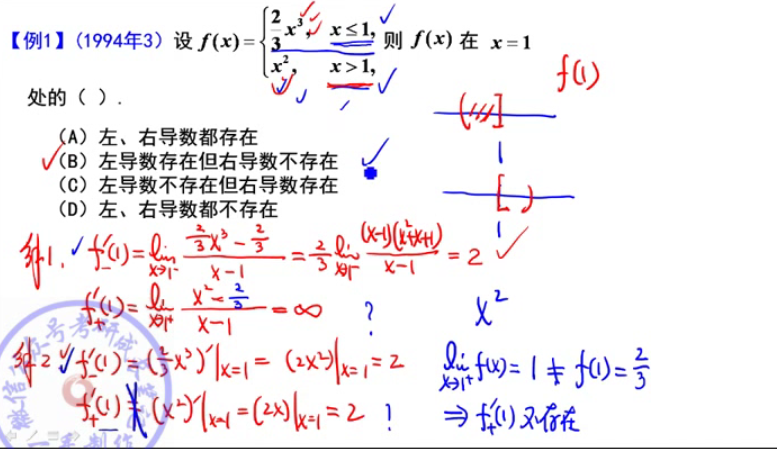 【例1】(1994年3) 设 f(x) = { 2/3 x³, x ≤ 1, x², x > 1, 则 f(x) 在 x = 1
处的 ( ).
f(1)
(A) 左、右导数都存在
(B) 左导数存在但右导数不存在
(C) 左导数不存在但右导数存在
(D) 左、右导数都不存在
1
1
解1. f₋′(1) = lim x→1⁻ (2/3 x³ − 2/3)/(x−1) = 2/3 lim x→1⁻ (x−1)(x²+x+1)/(x−1) = 2
f₊′(1) = lim x→1⁺ (x² − 2/3)/(x−1) = ∞ ?
x²
解2 f₋′(1) = (2/3 x³)′|x=1 = (2x²)|x=1 = 2
f₊′(1) = (x²)′|x=1 = (2x)|x=1 = 2 ?
lim x→1⁺ f(x) = 1 ≠ f(1) = 2/3
⇒ f₊′(1) 不存在